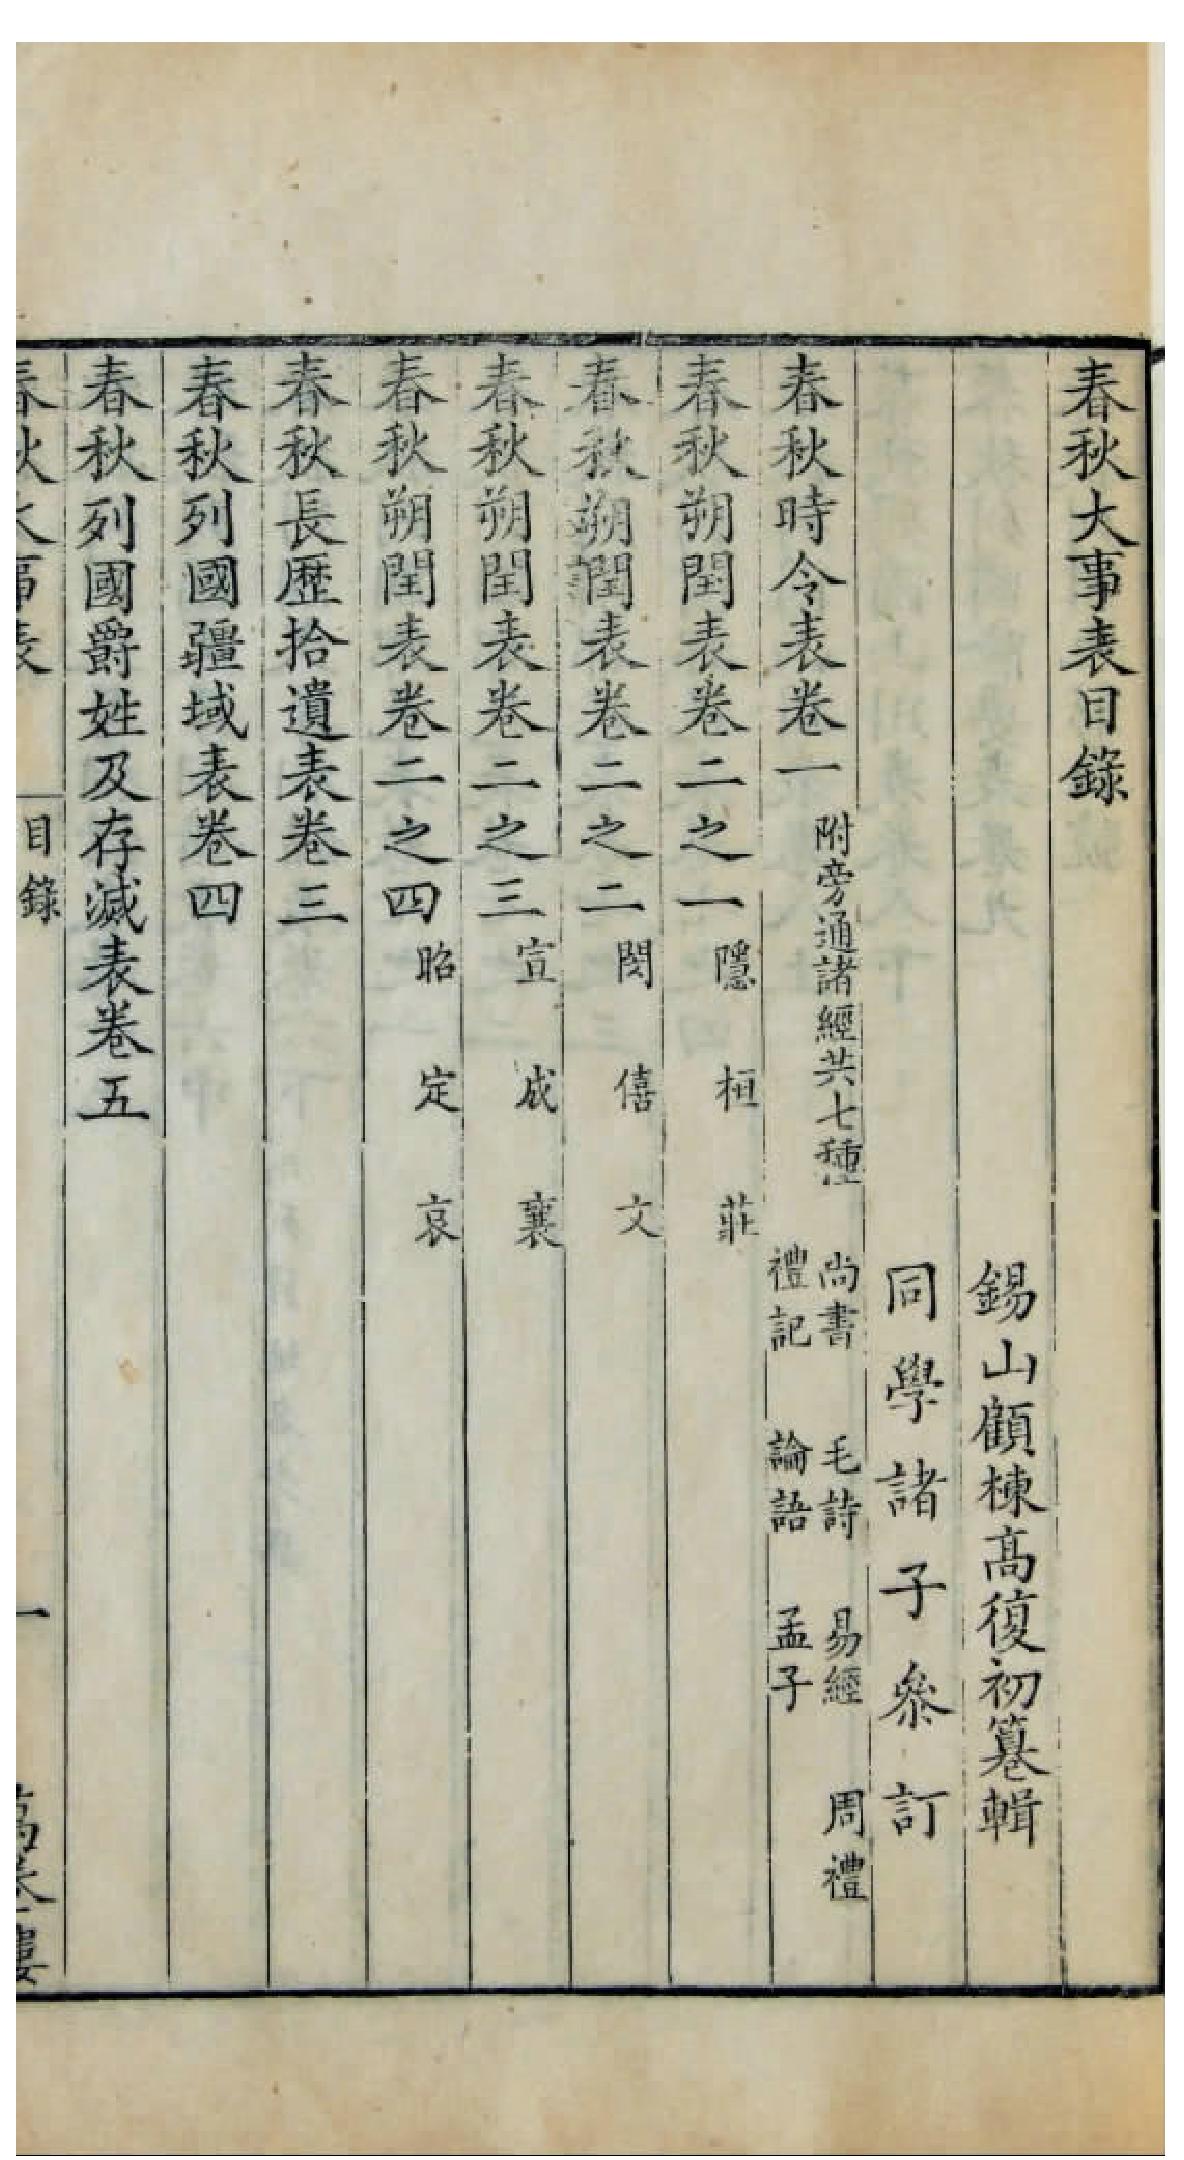 春秋大事表目錄
錫山顧棟高復初纂輯
同學諸子叅訂
春秋時令表卷一 附旁通諸經共七種 尚書 毛詩 易經 周禮
禮記 論語 孟子
春秋朔閏表卷二之一 隱 桓 莊
春秋朔閏表卷二之二 閔 僖 文
春秋朔閏表卷二之三 宣 成 襄
春秋朔閏表卷二之四 昭 定 哀
春秋長歷拾遺表卷三
春秋列國疆域表卷四
春秋列國爵姓及存滅表卷五
春秋大事表 目錄 一 萬卷樓